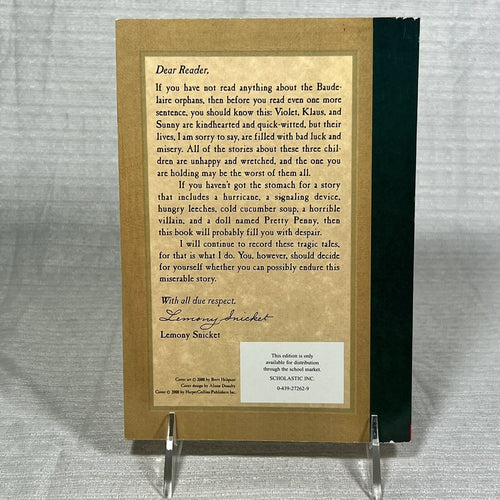 Dear Reader,
If you have not read anything about the Baude-
laire orphans, then before you read even one more
sentence, you should know this: Violet, Klaus, and
Sunny are kindhearted and quick-witted, but their
lives, I am sorry to say, are filled with bad luck and
misery. All of the stories about these three chil-
dren are unhappy and wretched, and the one you
are holding may be the worst of them all.
If you haven't got the stomach for a story
that includes a hurricane, a signaling device,
hungry leeches, cold cucumber soup, a horrible
villain, and a doll named Pretty Penny, then
this book will probably fill you with despair.
I will continue to record these tragic tales,
for that is what I do. You, however, should decide
for yourself whether you can possibly endure this
miserable story.
With all due respect,
Lemony Snicket
Lemony Snicket
This edition is only
available for distribution
through the school market.
SCHOLASTIC INC.
0-439-27262-9
Cover art © 2000 by Brett Helquist
Cover design by Alison Donalty
Cover © 2000 by HarperCollins Publishers Inc.